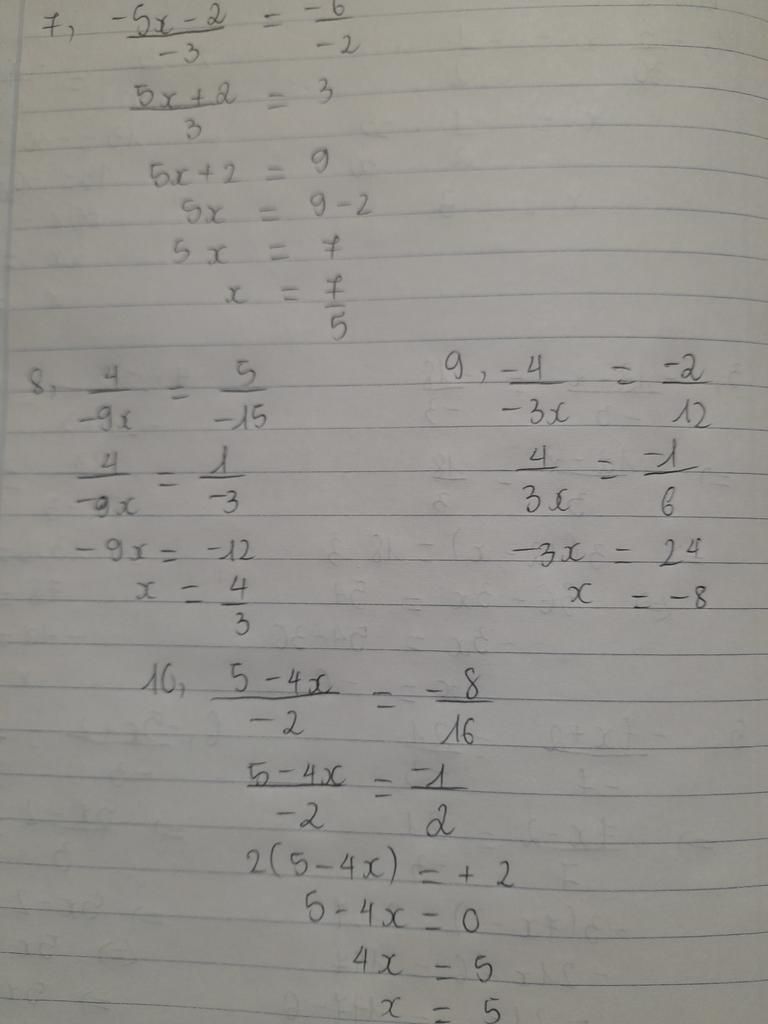 7, (-5x - 2)/(-3) = (-6)/(-2)
(5x + 2)/3 = 3
5x + 2 = 9
5x = 9 - 2
5x = 7
x = 7/5
8, 4/(-9x) = 5/(-15)
4/(-9x) = 1/(-3)
-9x = -12
x = 4/3
9, (-4)/(-3x) = (-2)/12
4/(3x) = (-1)/6
-3x = 24
x = -8
10, (5 - 4x)/(-2) = (-8)/16
(5 - 4x)/(-2) = (-1)/2
2(5 - 4x) = + 2
5 - 4x = 0
4x = 5
x = 5